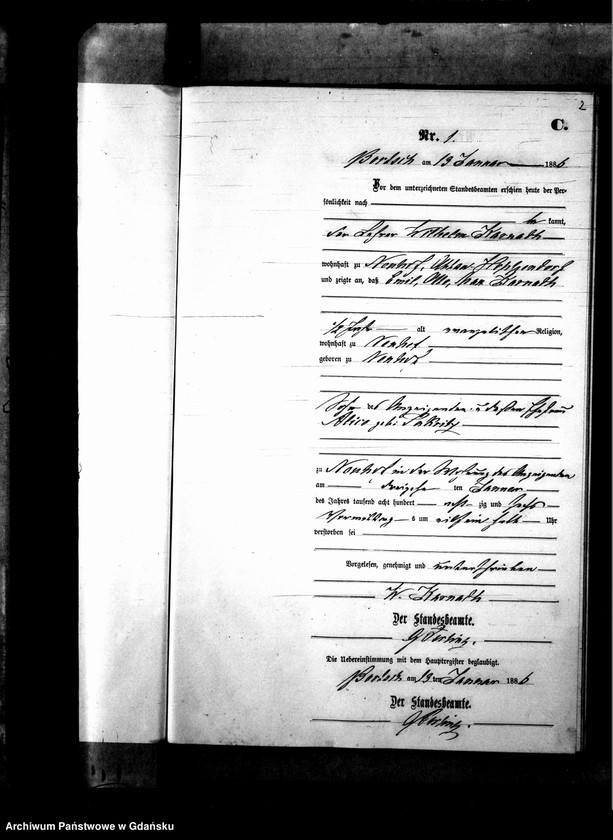 2
C.
Nr. 1.
am 13 Januar 1886
Vor dem unterzeichneten Standesbeamten erschien heute der Per-
sönlichkeit nach
kannt,
der Lehrer Wilhelm Karnath
wohnhaft zu Neuhof,
und zeigte an, daß Emil, Otto, Max Karnath
1/2 Jahr alt evangelischer Religion,
wohnhaft zu Neuhof
geboren zu Neuhof
Sohn des Anzeigenden u. dessen Ehefrau
geb.
zu Neuhof in der Wohnung des Anzeigenden
am ten Januar
des Jahres tausend acht hundert acht zig und sechs
Vormittags um ein halb Uhr
verstorben sei
Vorgelesen, genehmigt und unterschrieben
W. Karnath
Der Standesbeamte.
Die Uebereinstimmung mit dem Hauptregister beglaubigt.
am 13 ten Januar 1886
Der Standesbeamte.
Archiwum Państwowe w Gdańsku